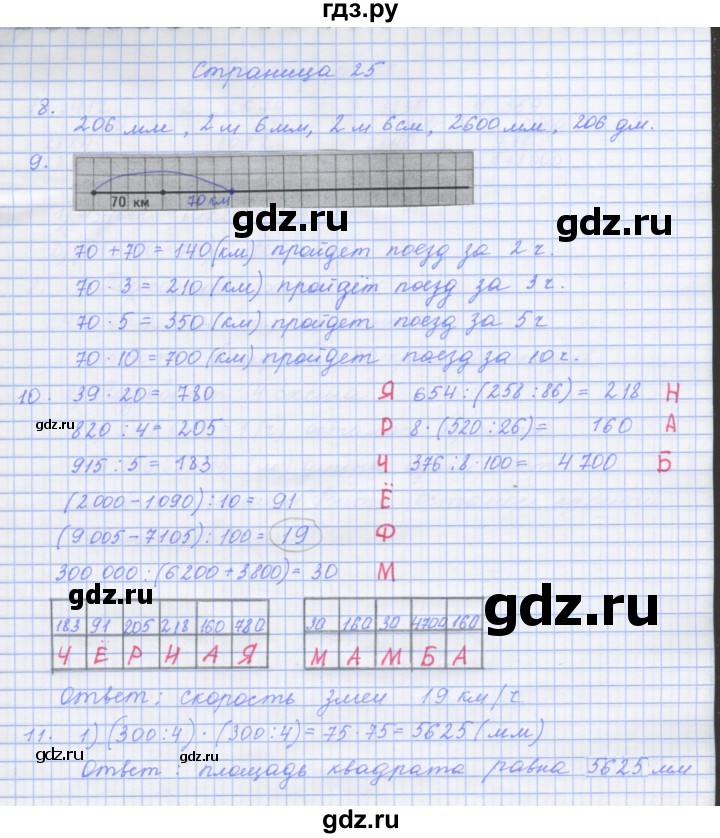 гдз.ру
Страница 25
8.
206 мм, 2 м 6 мм, 2 м 6 см, 2600 мм, 206 дм.
9.
70 км 70 км
gdz.ru
70 + 70 = 140 (км) пройдет поезд за 2 ч.
70 · 3 = 210 (км) пройдёт поезд за 3 ч.
70 · 5 = 350 (км) пройдет поезд за 5 ч
70 · 10 = 700 (км) пройдет поезд за 10 ч.
10. 39 · 20 = 780 Я 654 : (258 : 86) = 218 Н
gdz.ru gdz.ru
820 : 4 = 205 Р 8 · (520 : 26) = 160 А
915 : 5 = 183 Ч 376 : 8 · 100 = 4700 Б
(2000 - 1090) : 10 = 91 Ё
(9005 - 7105) : 100 = 19 Ф
300 000 : (6200 + 3800) = 30 М
gdz.ru gdz.ru
183 91 205 218 160 780 30 160 30 4700 160
Ч Ё Р Н А Я М А М Б А
Ответ: скорость змеи 19 км/ч
11. 1) (300 : 4) · (300 : 4) = 75 · 75 = 5625 (мм)
gdz.ru gdz.ru
Ответ: площадь квадрата равна 5625 мм
gdz.ru